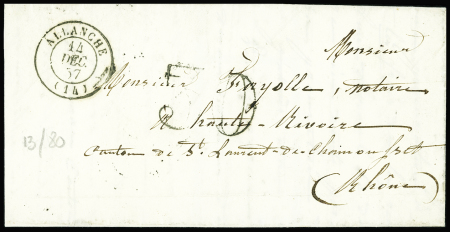 ALLANCHE
14
DEC.
57
(14)
Monsieur
Monsieur Fayolle, notaire
à haute-Rivoire
Canton de St Laurent-de-Chamousset
(Rhône)
30
13/80